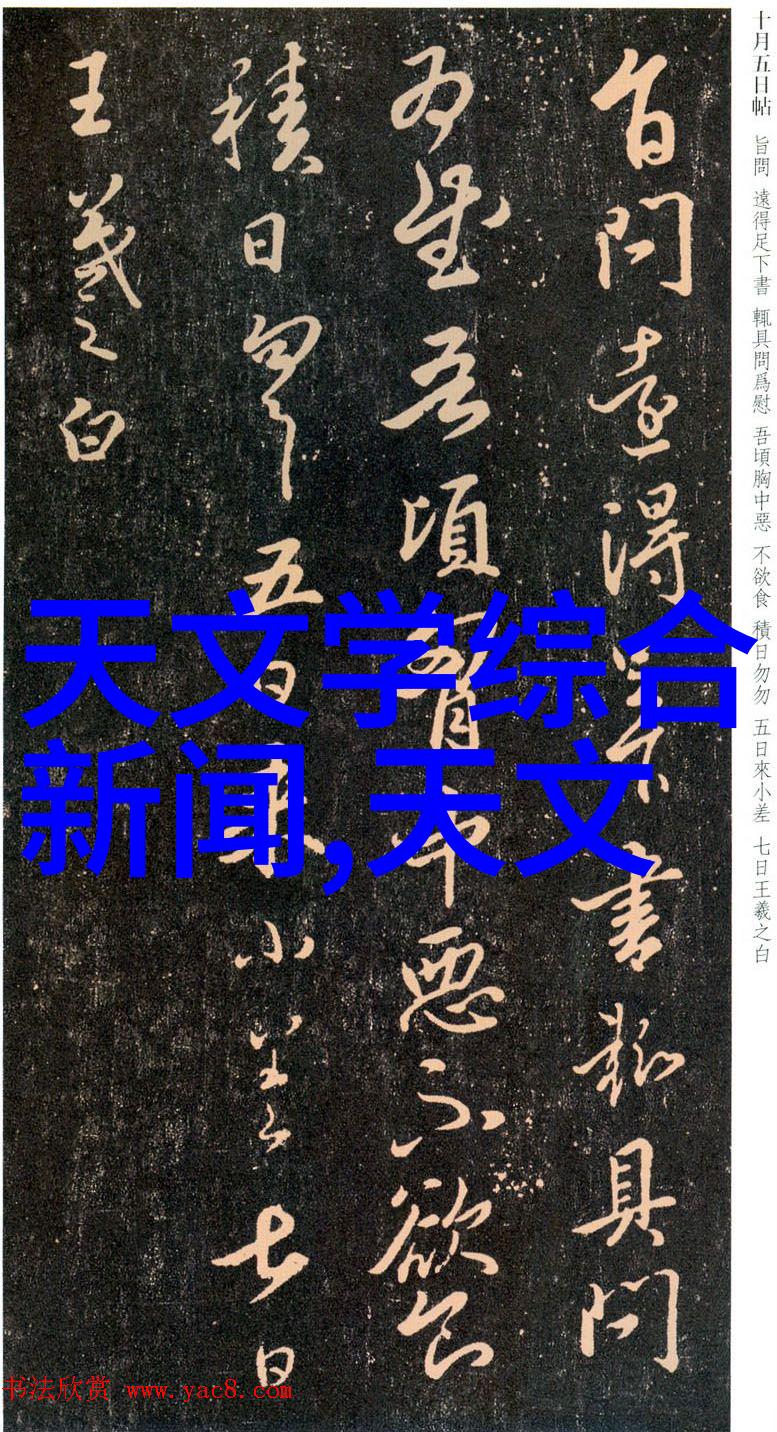 十月五日帖 旨問 遠得足下書 輒具問爲慰 吾頃胸中惡 不欲食 積日勿勿 五日來小差 七日王羲之白
旨問遠得足下書輒具問
爲慰吾頃胸中惡不欲食
積日勿勿五日來小差七日
王羲之白
天文学综合
新闻,天文
书法欣赏 www.yac8.com